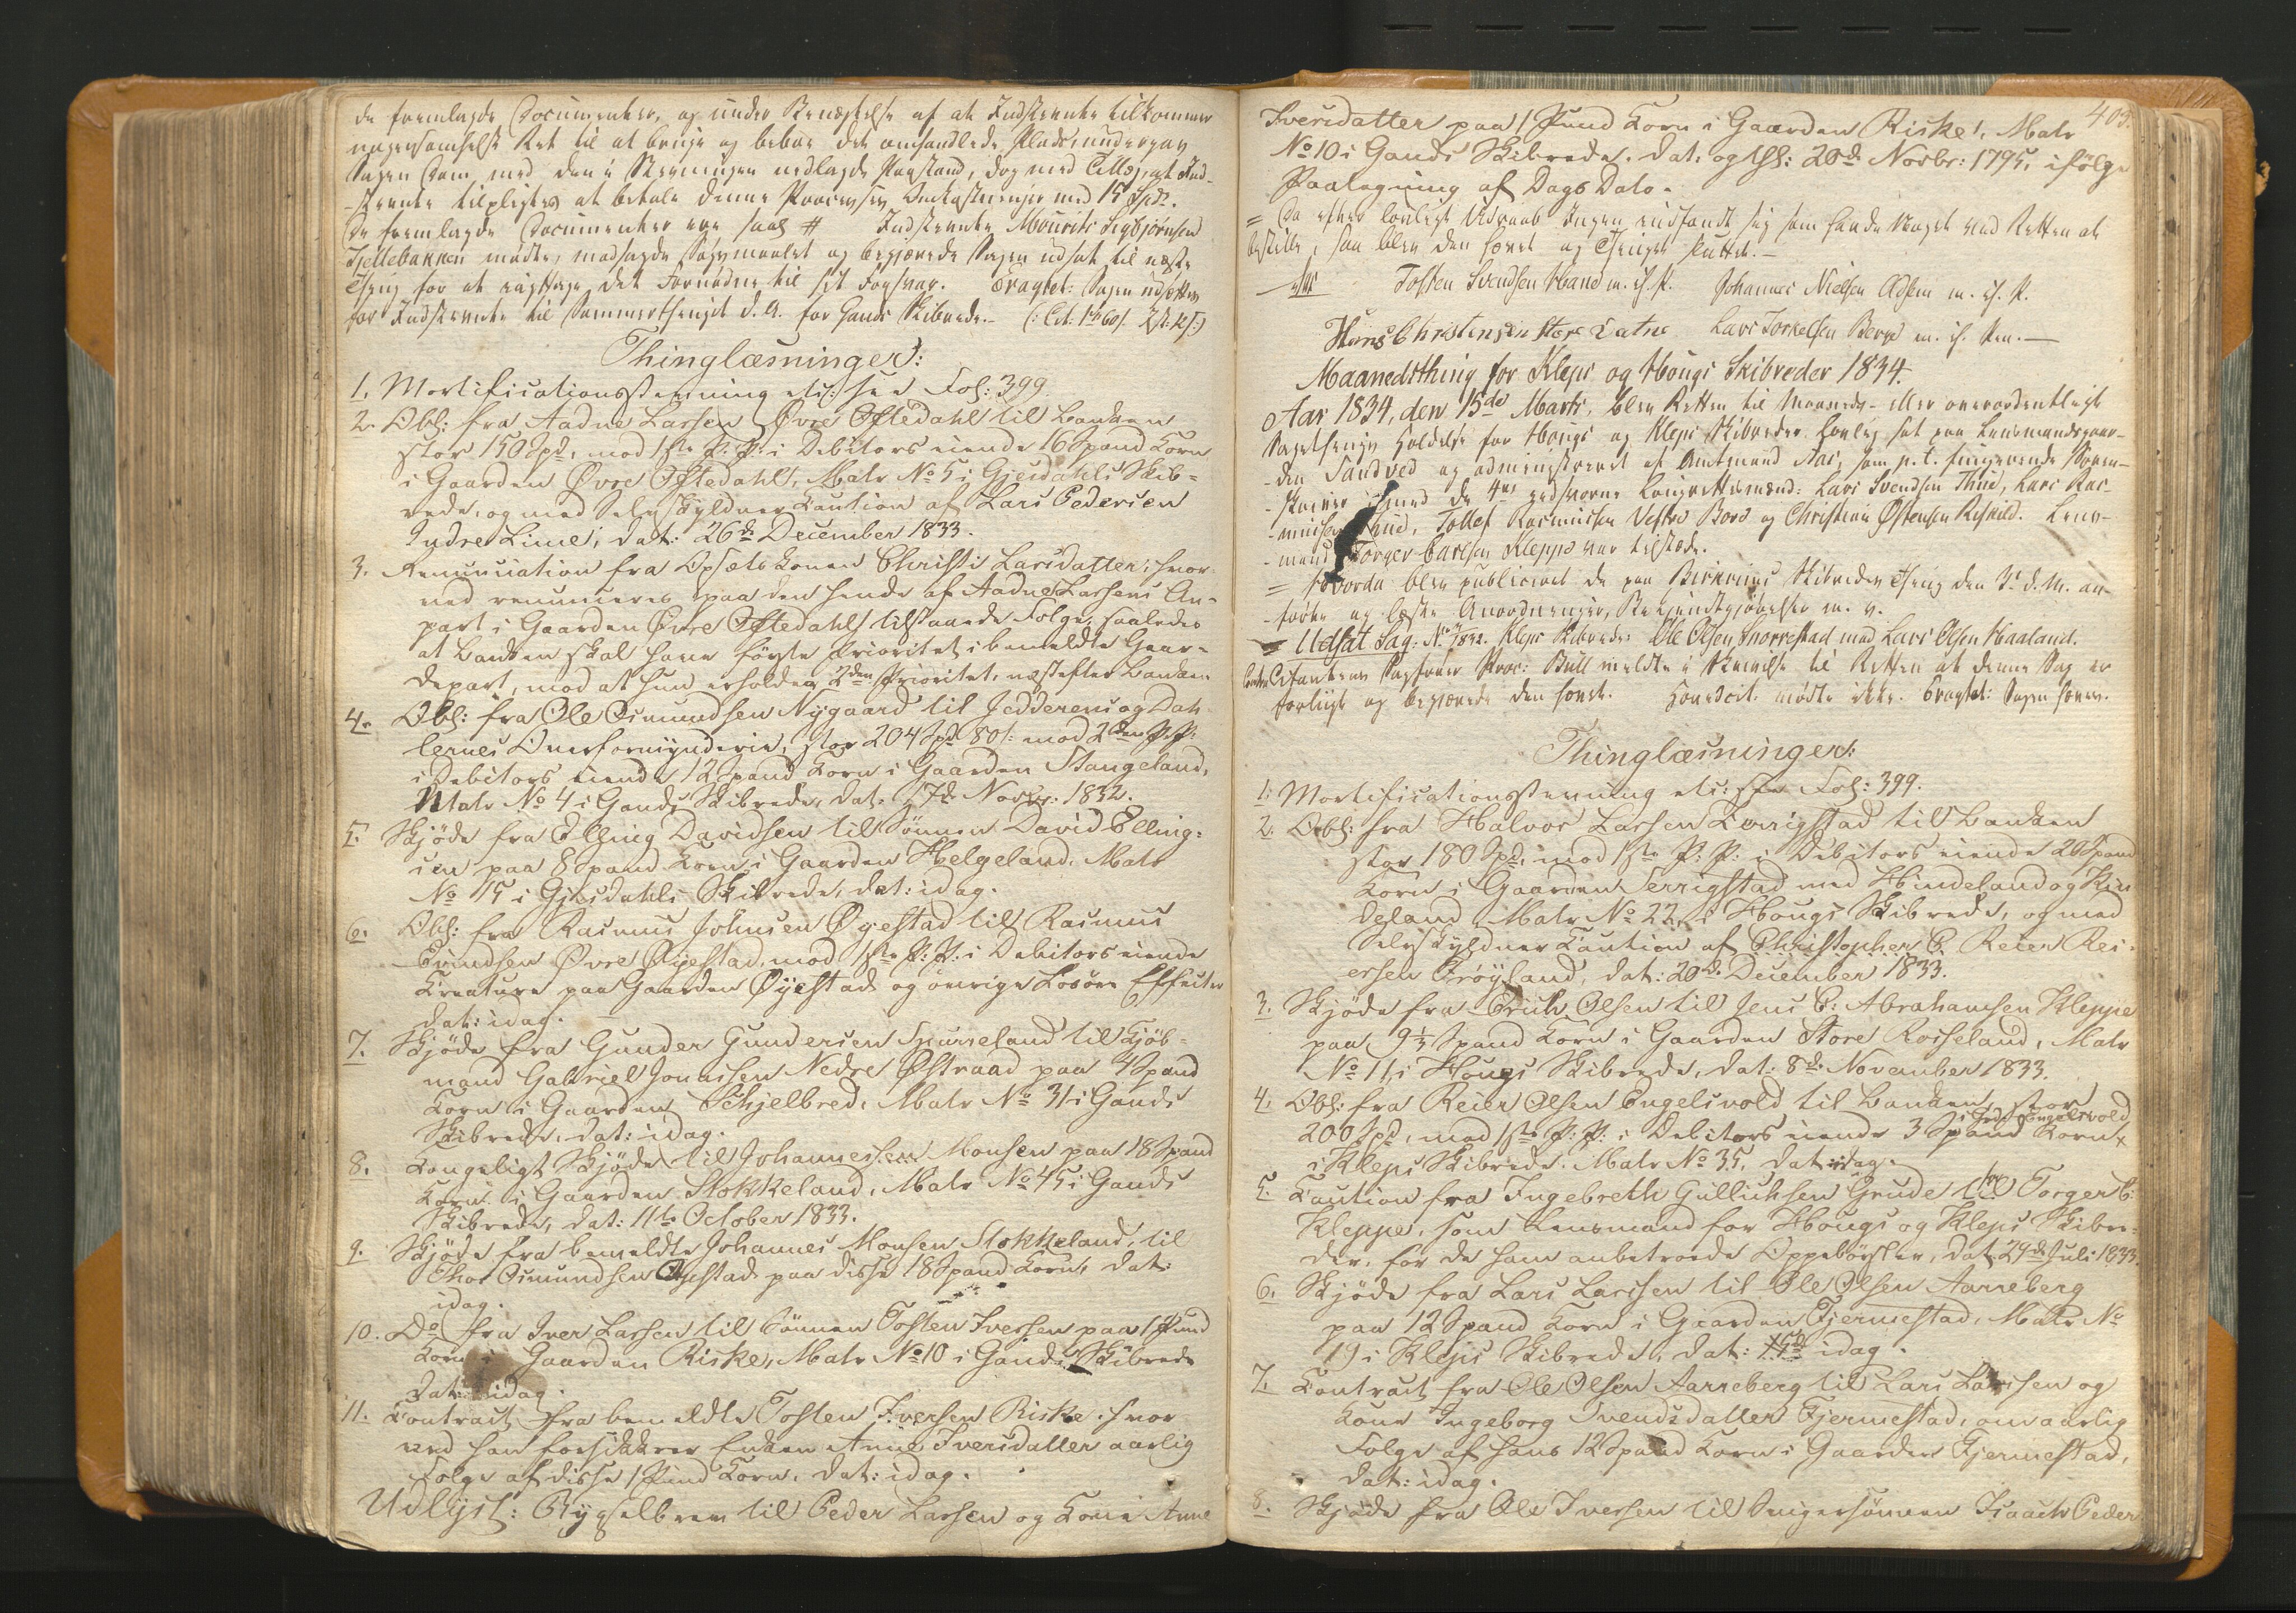 de fremlagde Documenter, og under Benægtelse af at Indstevnte tilkommer
nogensomhelst Ret til at bruge og beboe det omhandlede Plads, undergav
Sagen Dom, med den i Stevningen nedlagde Paastand, dog med Tillæg, at Ind-
stevnte tilpligtes at betale denne Processes Omkostninger med 15 Spd.
De fremlagde Documenter ere saal # Indstevnte Mourits Sigbjørnsen
Tjellebakken mødte, modsagde Søgsmaalet og begjærede Sagen udsat til næste
Thing for at iagttage det Fornødne til sit Forsvar. Eragtet: Sagen udsættes
for Indstevnte til Sommerthinget d. A. for Gands Skibrede.
Thinglæsninger:
1. Mortificationsstevning etc: see Fol: 399.
2. Obl: fra Aadne Larsen Øvre Oftedahl til Banken
stor 150 Spd, mod 1ste P: P: i Debitors eiende 16 Spand Korn
i Gaarden Øvre Oftedahl, Matr No 5 i Gjesdahls Skib-
rede, og med Selvskyldner Caution af Lars Pedersen
Indre Lime, dat: 26de December 1833.
3. Renunciation fra Opsæts Konen Christi Larsdatter, hvor
ved renunceres paa den hende af Aadne Larsens An-
part i Gaarden Øvre Oftedahl tilstaaede Folge, saaledes
at Banken skal have første Prioritet i bemeldte Gaar-
depart, mod at hun erholder 2den Prioritet, næstefter Banken
4. Obl: fra Ole Osmundsen Nygaard til Jedderens og Dah-
lernes Overformynderie, stor 204 Spd 80 s: mod 2den P: P:
i Debitors eiende 12 Spand Korn i Gaarden Stangeland,
Matr No 4 i Gands Skibrede, dat. 17de Novbr: 1832.
5. Skjöde fra Elling Davidsen til Sønnen David Elling-
sen paa 8 Spand Korn i Gaarden Helgeland, Matr
No 15 i Gjesdahls Skibrede, dat: idag.
6. Obl: fra Rasmus Johnsen Øyestad til Rasmus
Eivindsen Øvre Øyestad, mod 1ste P: P: i Debitors eiende
Kreature paa Gaarden Øyestad og øvrige Løsøre Effecter
dat: idag.
7. Skjöde fra Gunder Gundersen Spurreland til Kjöb-
mand Gabriel Jonassen Nedre Østraad paa 4 Spand
Korn i Gaarden Schjelbred, Matr No 31 i Gands
Skibrede, dat: idag.
8. Kongeligt Skjöde til Johannesen Monsen paa 18 Spand
Korn i Gaarden Stokkeland, Matr No 45 i Gands
Skibrede, dat: 11te October 1833.
9. Skjöde fra bemeldte Johannes Monsen Stokkeland, til
Thor Osmundsen Ogestad paa disse 18 Spand Korn, dat:
idag.
10. Do fra Iver Larsen til Sønnen Tosten Iversen paa 1 Pund
Korn i Gaarden Riske, Matr No 10 i Gands Skibrede
dat: idag.
11. Contract fra bemeldte Tosten Iversen Riske, hvor
ved han forsikkrer Enken Anne Iversdatter aarlig
Folge af disse 1 Pund Korn, dat: idag.
Udlyst: Bygselbrev til Peder Larsen og Kone Anne
403.
Iversdatter paa 1 Pund Korn i Gaarden Riske, Matr
No 10 i Gands Skibrede. dat: og thl: 20de Novbr: 1795, ifölge
Paategning af Dags Dato.
= Da efter lovligt Udraab Ingen indfandt sig som havde Noget ved Retten at
bestille, saa blev den hævet og Thinget sluttet.
Aas Tosten Svendsen Hane m. ih. P. Johannes Nielsen Adsem m. ih. P.
Hans Christensen Store Vatne Lars Torkelsen Berge m. ih. Pen.
Maanedsthing for Kleps og Hougs Skibreder 1834.
Aar 1834, den 15de Marts, blev Retten til Maaneds- eller overordentligt
Sagething holdelse for Hougs og Kleps Skibreder lovlig sat paa Lensmandsgaar-
den Sandved og administreret af Amtmand Aas, som p. t. fungerende Soren-
skriver med de 4re edsvorne Laugrettesmænd: Lars Svendsen Thue, Lars Ras-
mussen Thue, Tollef Rasmussen Vestre Bore og Christian Østensen Riskild. Lens-
mand Torger Carlsen Kleppe var tilstæde.
= Hvorda blev publiceret de paa Birkrems Skibredes Thing den 3. d. M. an-
førte og læste Anordninger, Bekjendtgjørelser m. v.
Udsat Sag: No 7/1832. Kleps Skibrede: Ole Olsen Snorrestad mod Lars Olsen Haaland.
Citantens Sagfører Proc: Bull meldte i Skrivelse til Retten at denne Sag er
forligt og begjærede den hævet. Contracit. mødte ikke. Eragtet: Sagen hæves.
Thinglæsninger:
1. Mortificationsstevning etc: see Fol: 399.
2. Obl: fra Halvor Larsen Serrigstad til Banken
stor 180 Spd, mod 1ste P: P: i Debitors eiende 20 Spand
Korn i Gaarden Serrigstad med Hindeland og Rin
deland Matr No 22 i Hougs Skibrede, og med
Selvskyldner Caution af Christopher E. Reier Rei-
ersen Frøyland, dat: 20de December 1833.
3. Skjöde fra Erich Olsen til Jens C: Abrahamsen Kleppe
paa 9½ Spand Korn i Gaarden Store Rosseland, Matr
No 11 i Hougs Skibrede, dat: 8de November 1833.
4. Obl: fra Reier Olsen Engelsvold til Banken, stor
200 Spd, mod 1ste P: P: i Debitors eiende 3 Spand Korn x
i Gd. Engelsvold
i Kleps Skibrede. Matr No 35, dat: idag.
5. Caution fra Ingebreth Gullichsen Grude for Torger C:
Kleppe, som Lensmand for Hougs og Kleps Skibre-
der, for de ham anbetroede Oppebörsler, dat: 29de Juli 1833.
6. Skjöde fra Lars Larssen til Ole Olsen Aarreberg
paa 12 Spand Korn i Gaarden Tjermestad, Matr No
19 i Kleps Skibrede, dat: idag.
7. Contract fra Ole Olsen Aarreberg til Lars Larssen og
Kone Ingeborg Svendsdatter Tjermestad, om aarlig
Folge af hans 12 Spand Korn i Gaarden Tjermestad,
dat: idag.
8. Skjöde fra Ole Iversen til Svigersönnen Isaach Peder